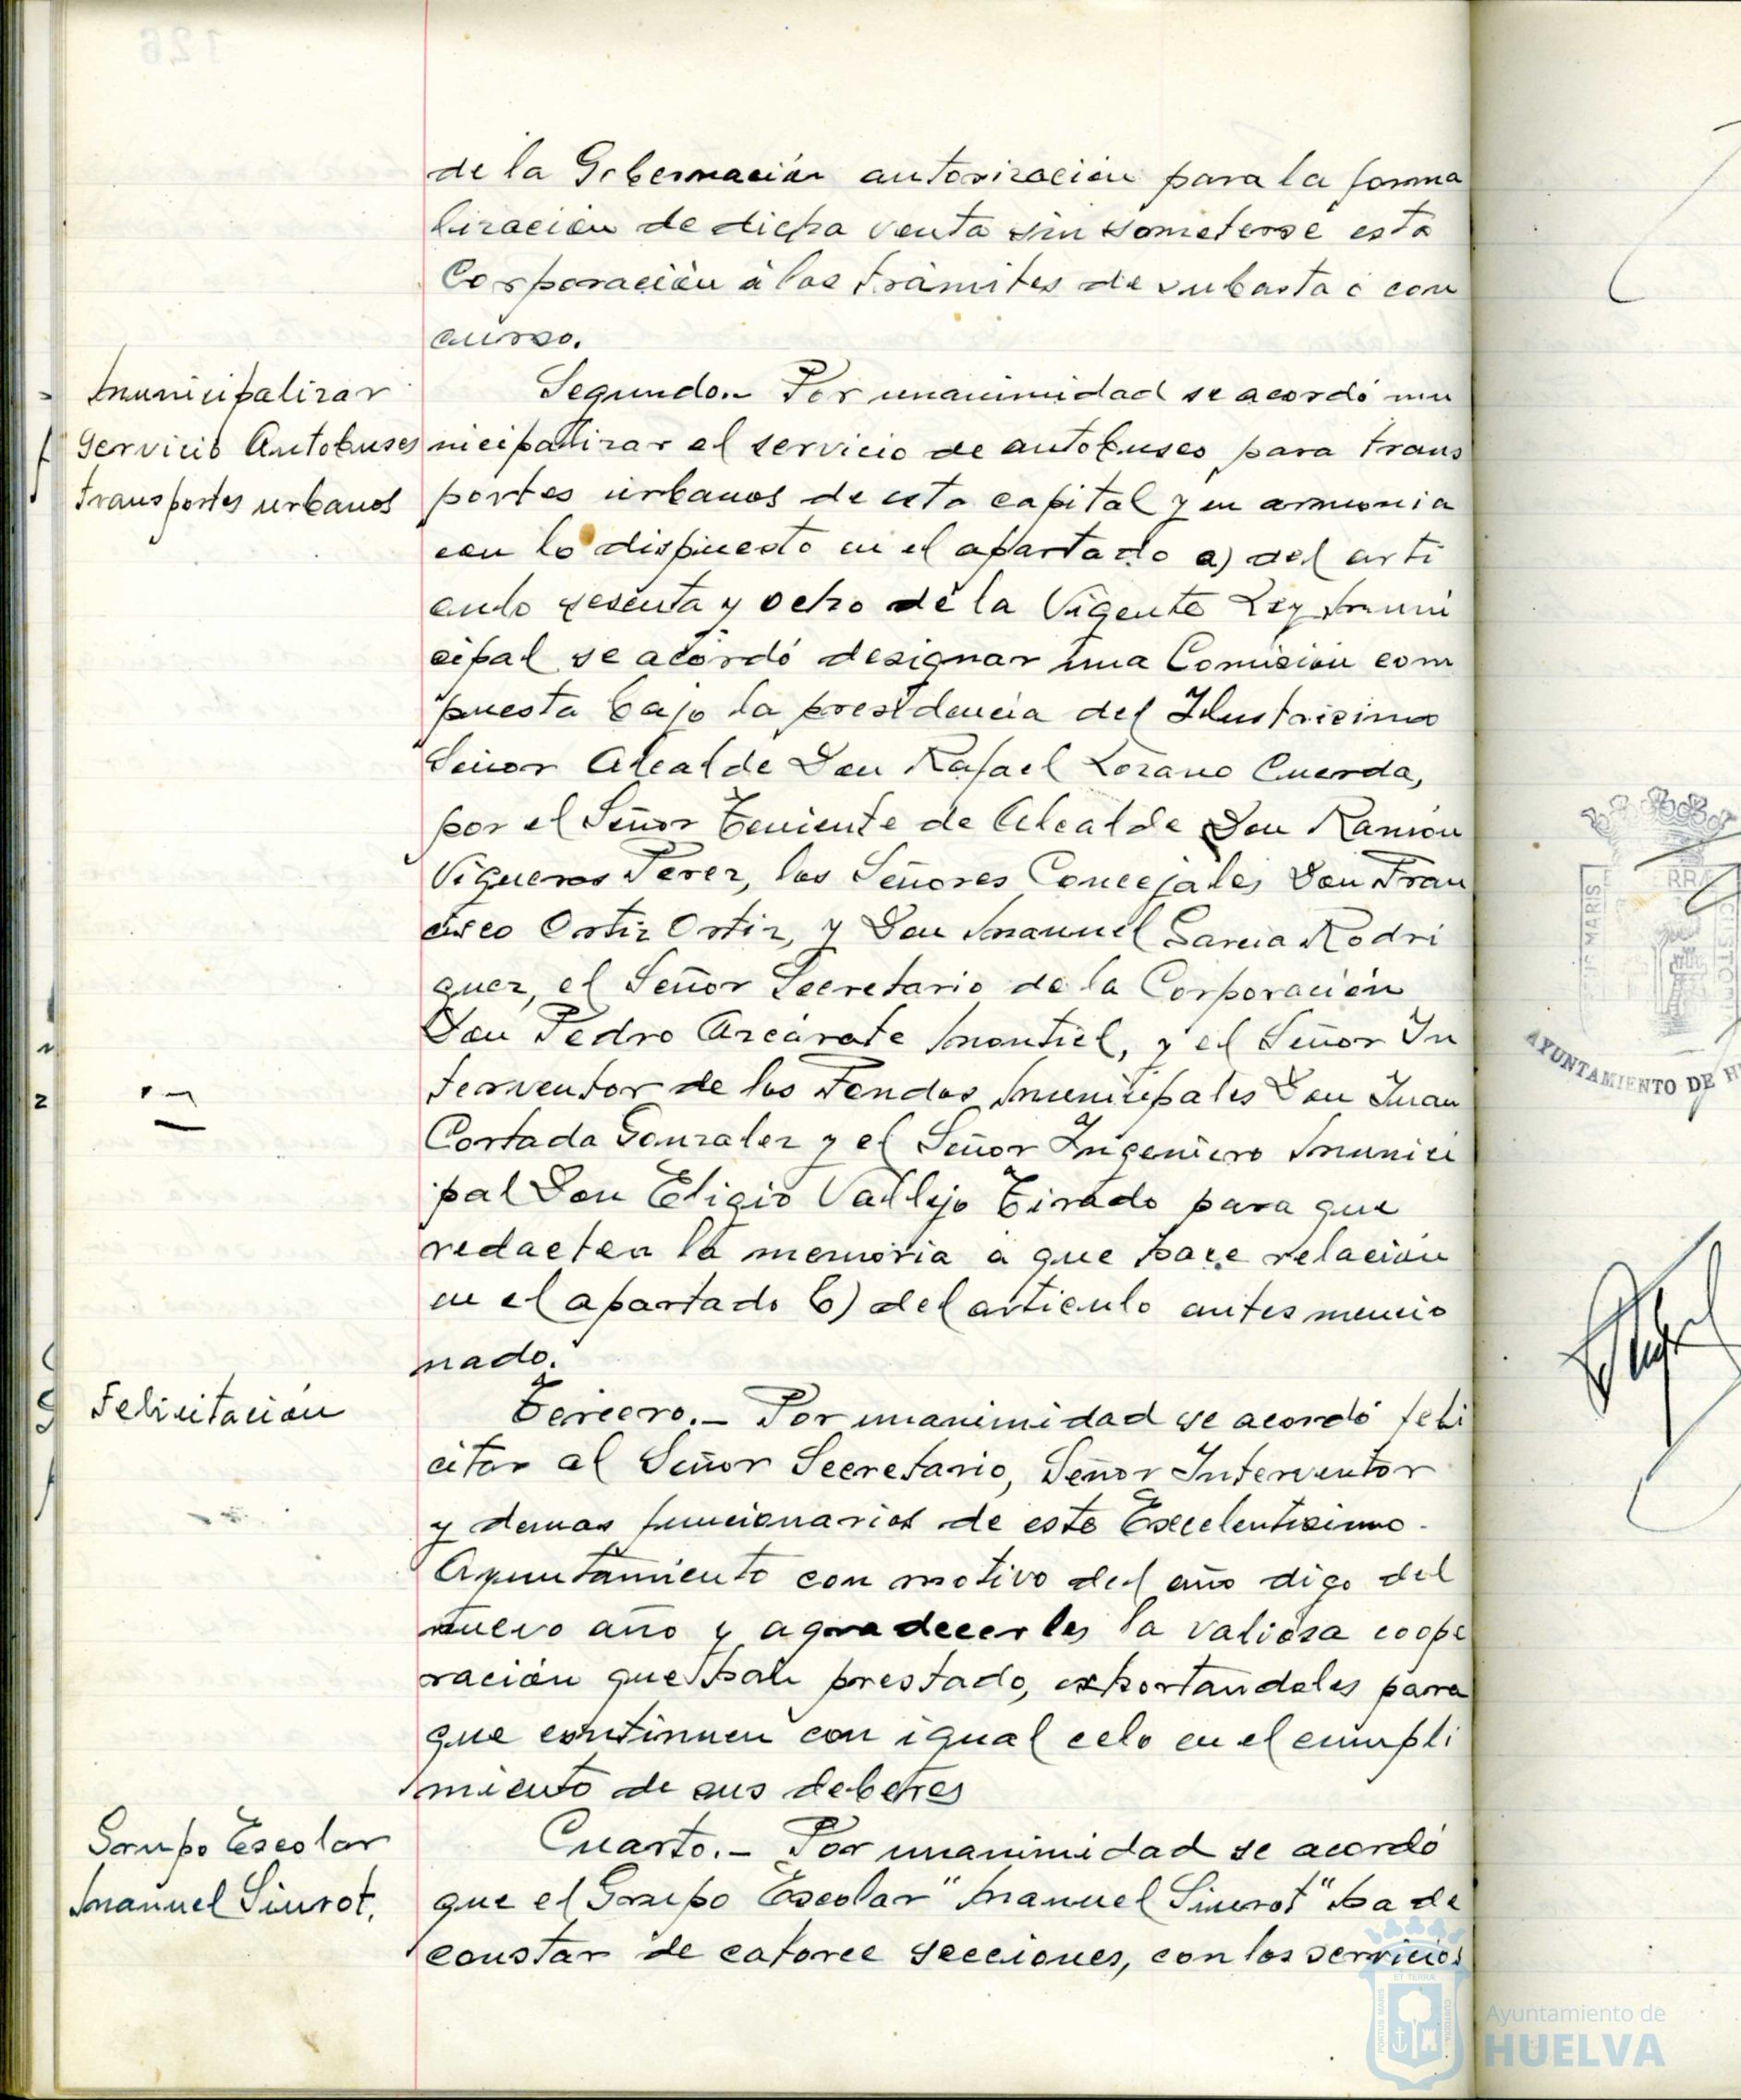 de la Gobernación autorización para la forma
lización de dicha venta sin someterse esta
Corporación á los trámites de subasta ó con
curso.
Municipalizar
Servicio Autobuses
transportes urbanos
Segundo.- Por unanimidad se acordó mu
nicipalizar el servicio de autobuses para trans
portes urbanos de esta capital y en armonia
con lo dispuesto en el apartado a) del arti
culo sesenta y ocho de la Vigente Ley Muni
cipal se acordó designar una Comisión com
puesta bajo la presidencia del Ilustrisimo
Señor Alcalde Don Rafael Lozano Cuerda,
por el Señor Teniente de Alcalde Don Ramón
Vigueras Perez, los Señores Concejales Don Fran
cisco Ortiz Ortiz, y Don Manuel Garcia Rodri
guez, el Señor Secretario de la Corporación
Don Pedro Azcárate Montiel, y el Señor In
terventor de los Fondos Municipales Don Juan
Cortada Gonzalez y el Señor Ingeniero Munici
pal Don Eligio Vallejo Tirado para que
redacten la memoria á que hace relación
en el apartado b) del articulo antes mencio
nado.
Felicitación
Tercero.- Por unanimidad se acordó feli
citar al Señor Secretario, Señor Interventor
y demas funcionarios de este Excelentisimo
Ayuntamiento con motivo del año digo del
nuevo año y agradecerles la valiosa coope
ración que han prestado, exhortandoles para
que continuen con igual celo en el cumpli
miento de sus deberes
Grupo Escolar
Manuel Siurot.
Cuarto.- Por unanimidad se acordó
que el Grupo Escolar "Manuel Siurot" ha de
constar de catorce secciones, con los servicios
126
AYUNTAMIENTO DE H
Ayuntamiento de
HUELVA